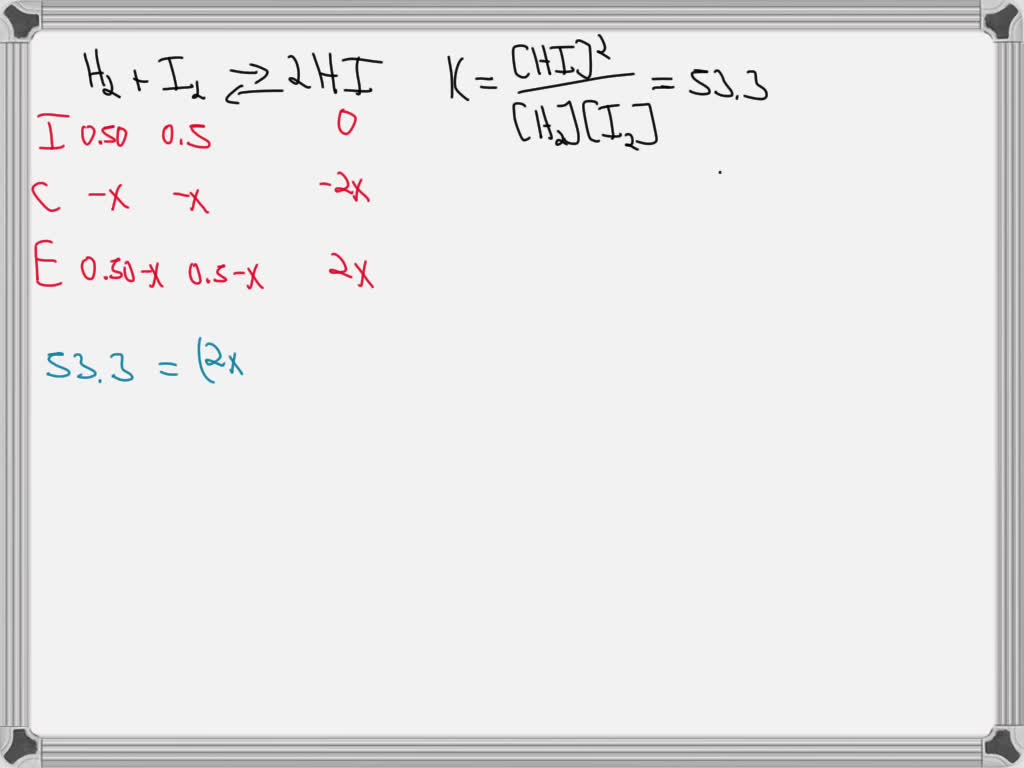 H₂ + I₂ ⇌ 2HI K = [HI]² / [H₂][I₂] = 53.3
I 0.50 0.5 0
C -x -x -2x
E 0.50-x 0.5-x 2x
53.3 = (2x